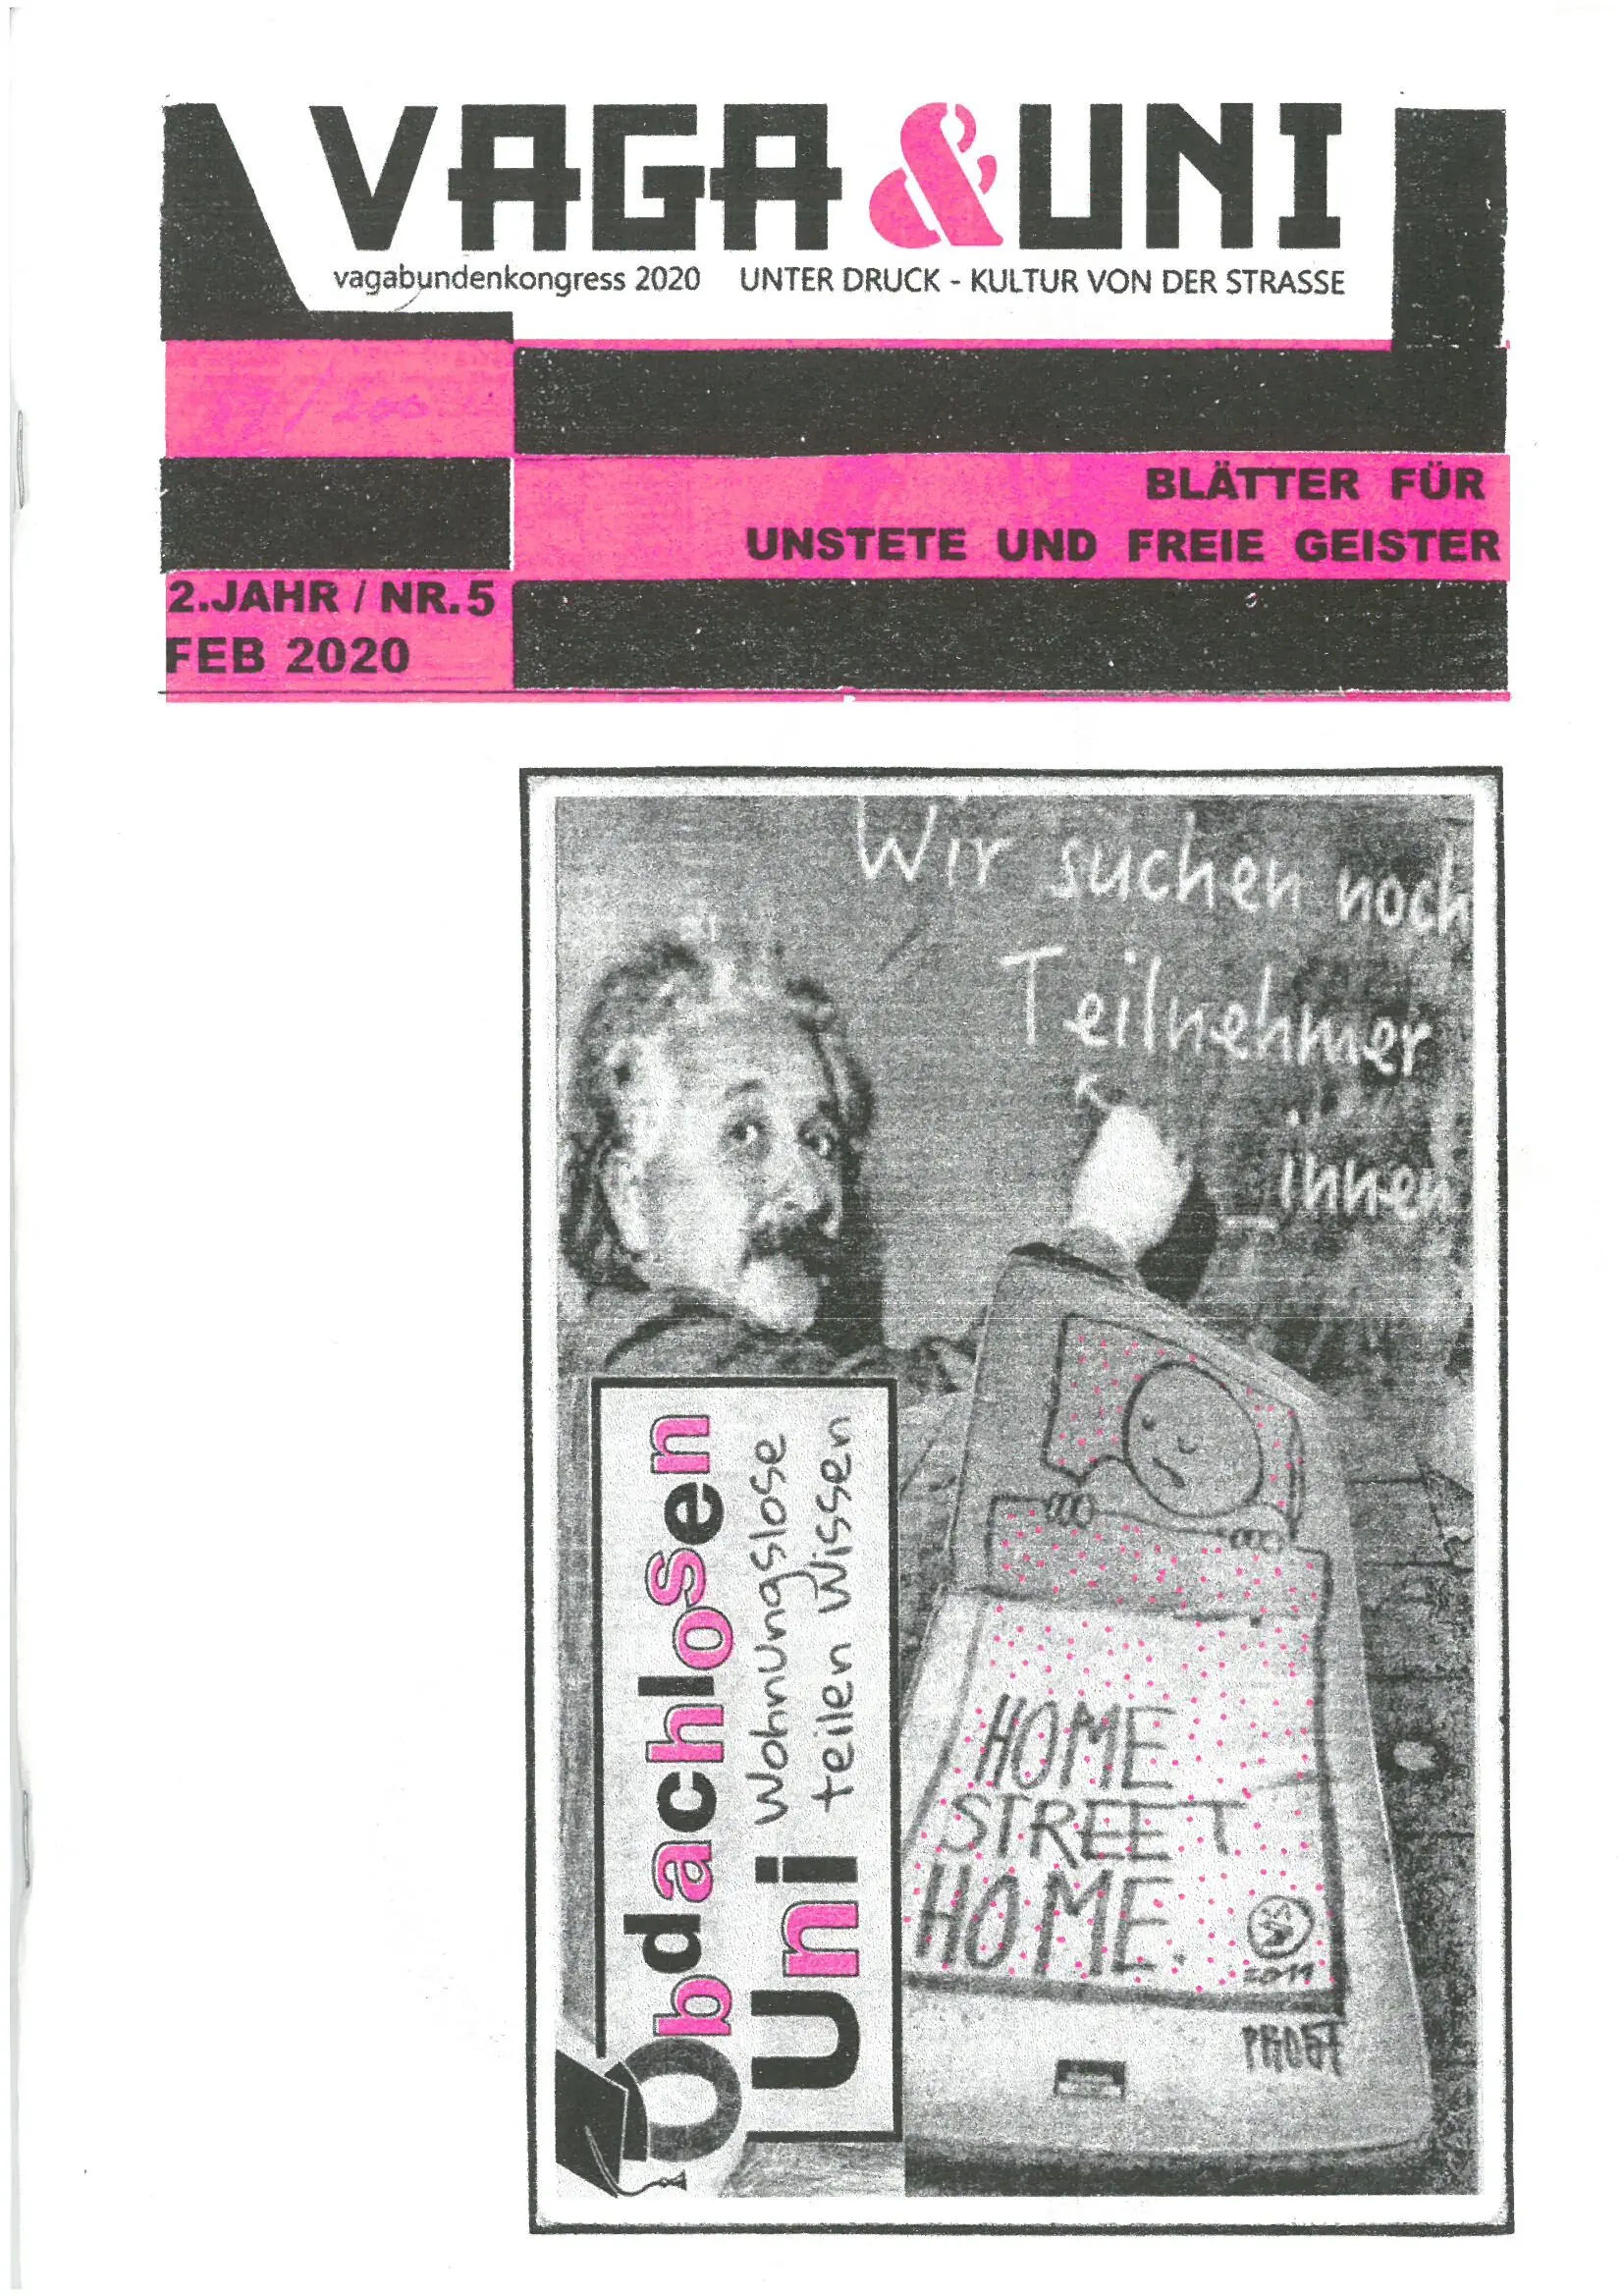 VAGA & UNI
vagabundenkongress 2020 UNTER DRUCK - KULTUR VON DER STRASSE
/200
BLÄTTER FÜR
UNSTETE UND FREIE GEISTER
2.JAHR / NR.5
FEB 2020
Wir suchen noch
Teilnehmer
_innen
Obdachlosen
Uni
Wohnungslose
teilen Wissen
HOME
STREET
HOME.
2011